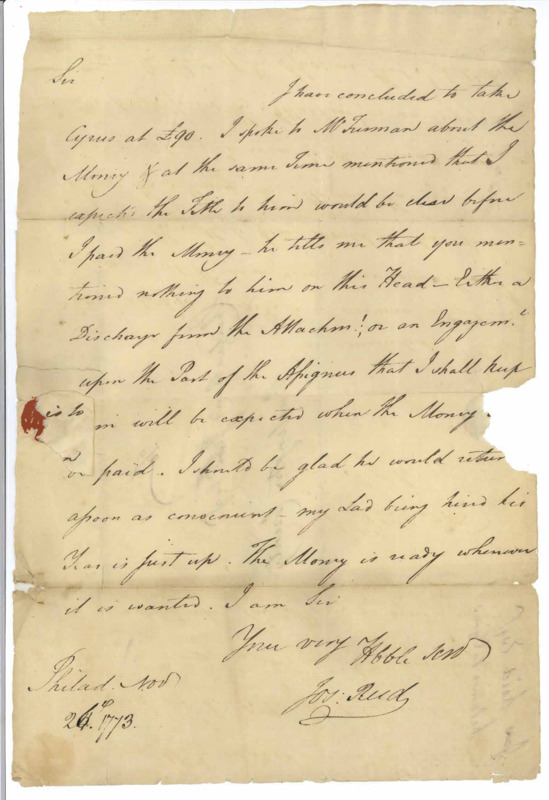 Sir
I have concluded to take
Cyrus at £90. I spoke to Mr Furman about the
Money & at the same Time mentioned that I
expected the Title to him would be clear before
I paid the Money – he tells me that you men=
tioned nothing to him on this Head – Either a
Discharge from the Attachmt, or an Engagemt
upon the Part of the Assignees that I shall keep
in will be expected when the Money
is to
be paid. I should be glad he would return
assoon as convenient my Lad being hired his
Year is just up. The Money is ready whenever
it is wanted. I am Sir
Your very Hbble Serv
Jos: Reed
Philad. Nov
26. 1773.